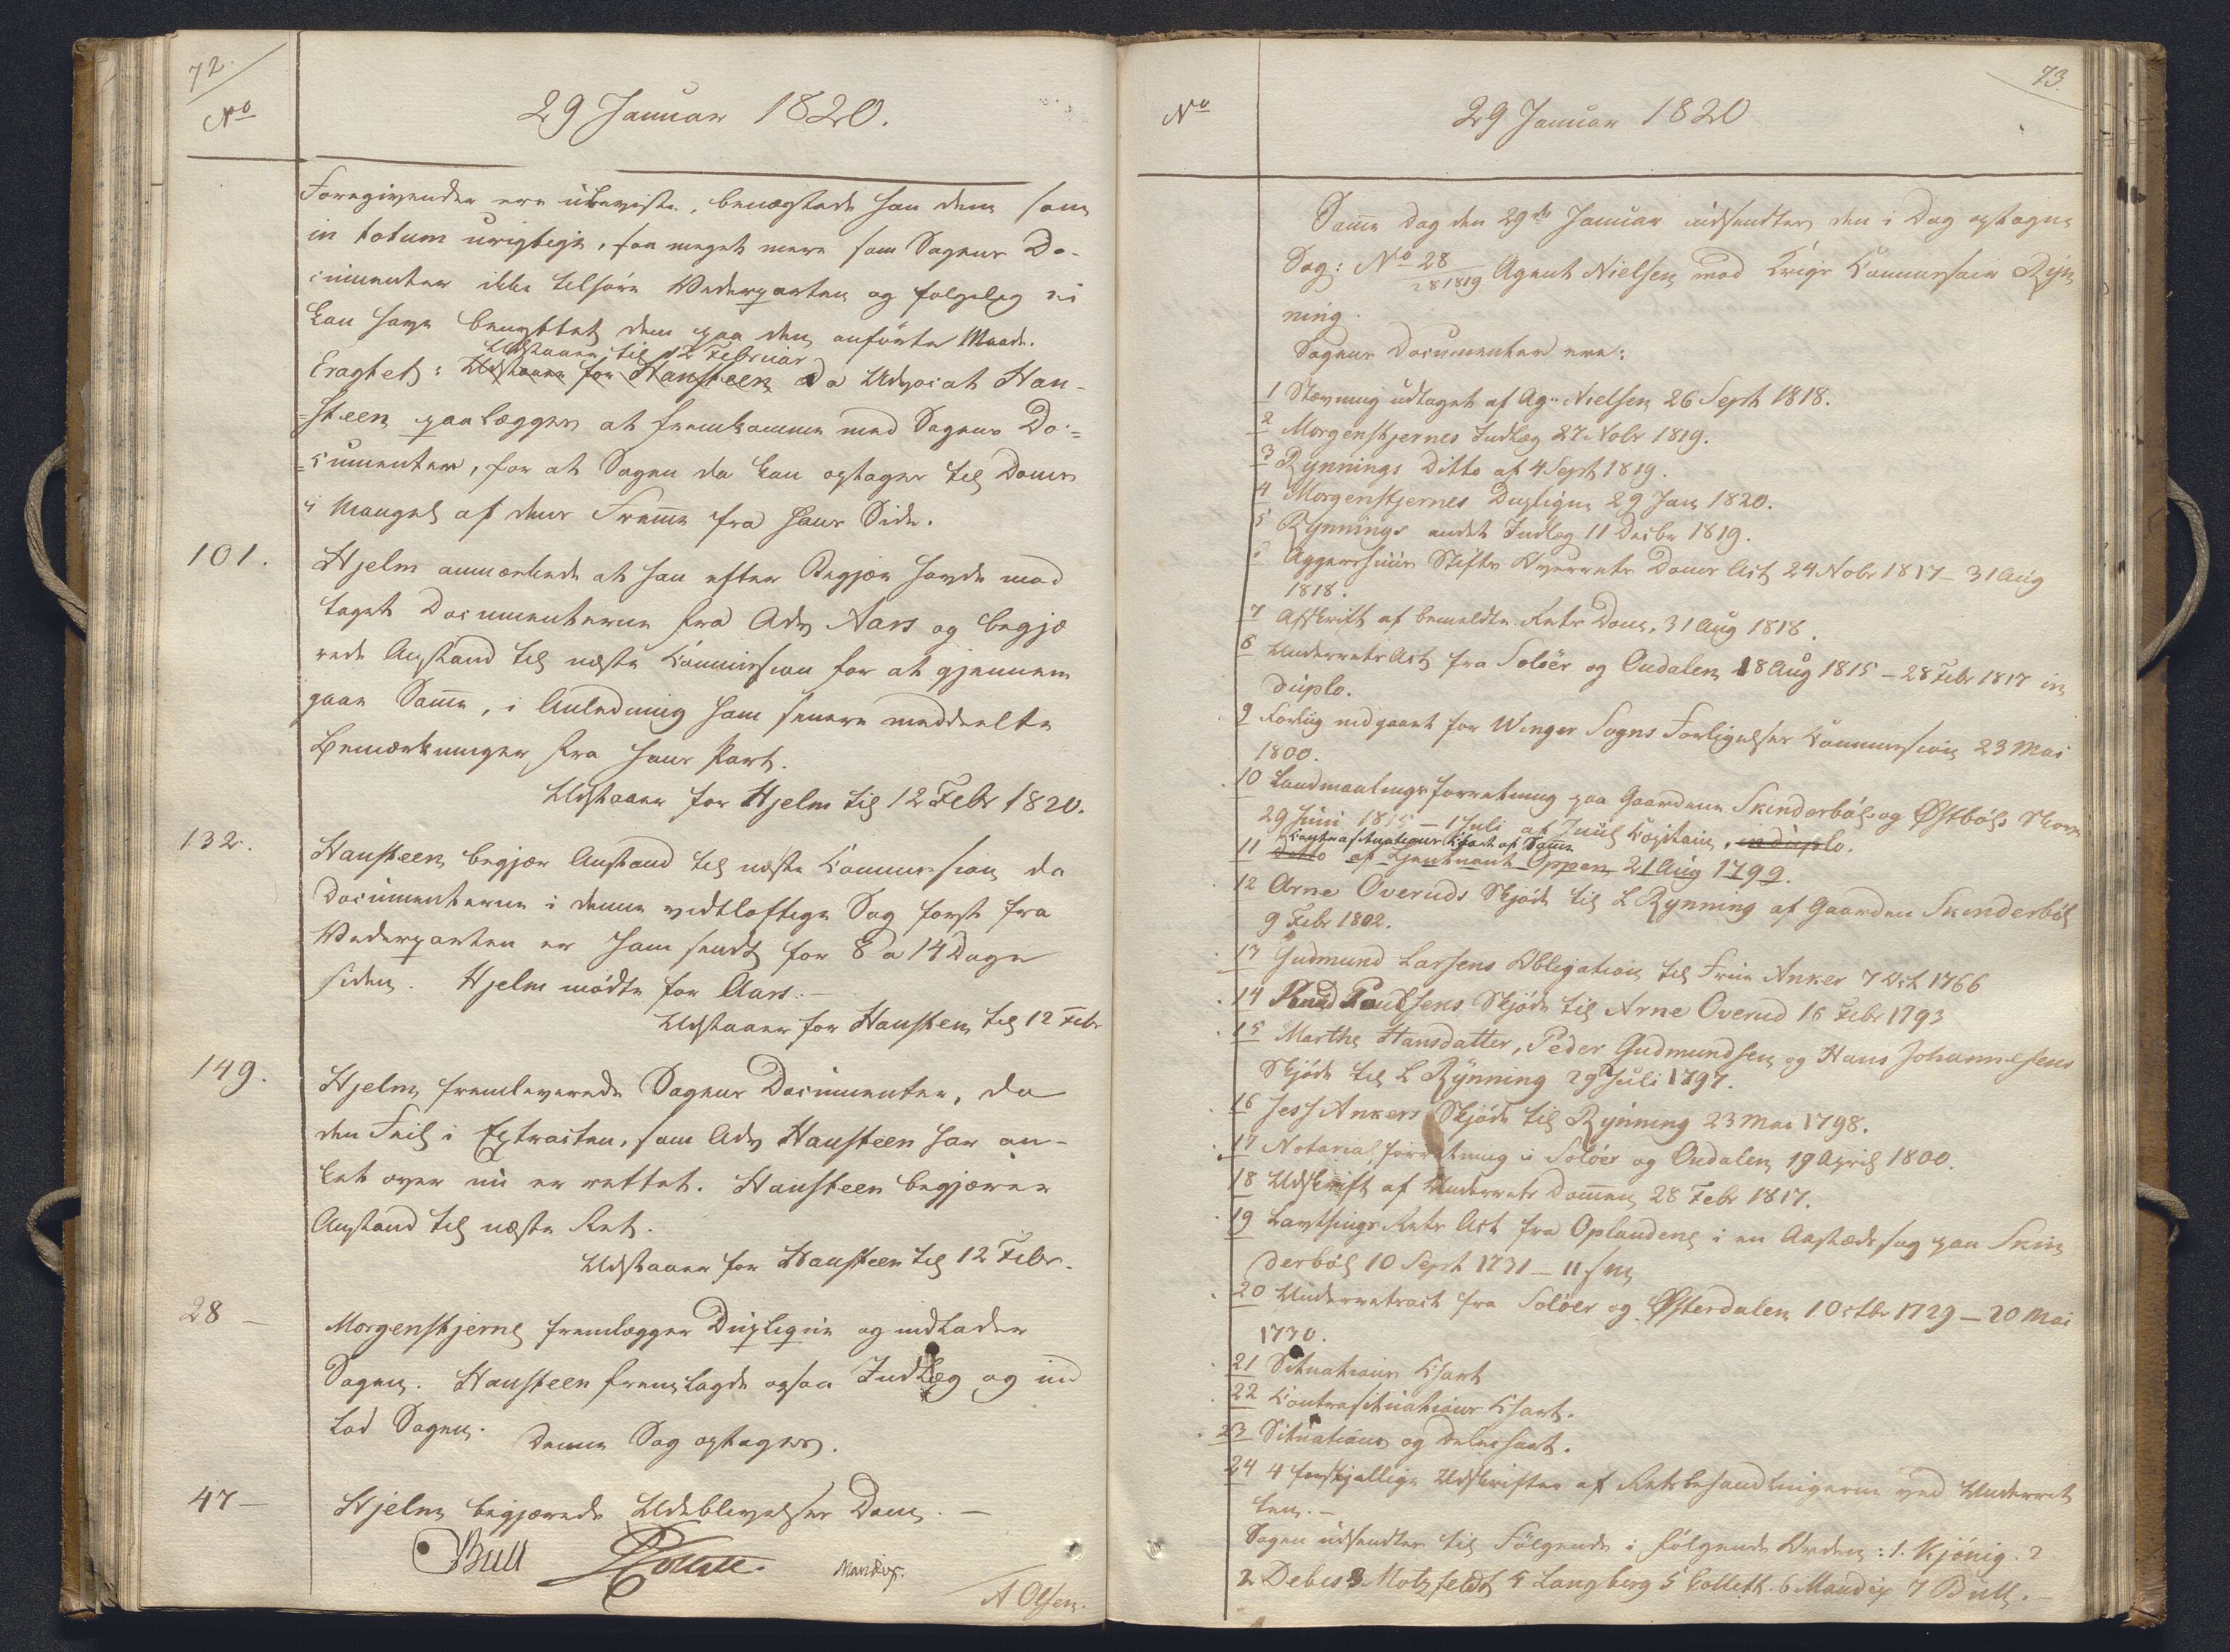 72.
No
29 Januar 1820.
Foregivender ere ubeviste, benægtede han dem som
in totum urigtige, saa meget mere som Sagens Do-
cumenter ikke tilhøre Vederparten og følgelig ei
kan have benyttet dem paa den anførte Maade.
Udstaaer til 12 Februar
Eragtet: Udstaaer for Hansteen da Advocat Han-
steen paalægges at fremkomme med Sagens Do-
cumenter, for at Sagen da kan optages til Doms
i Mangel af dens Fremme fra hans Side.
101.
Hjelm anmærkede at han efter Begjær havde mod
taget Documenterne fra Adv Aars og begjæ
rede Anstand til næste Commission for at gjennem
gaae Samme, i Anledning ham senere meddeelte
Bemærkninger fra hans Part.
Udstaaer for Hjelm til 12 Febr 1820.
132.
Hansteen begjær Anstand til næste Commission da
Documenterne i denne vidtløftige Sag først fra
Vederparten er ham sendt for 8 a 14 Dage
siden. Hjelm mødte for Aars.-
Udstaaer for Hansteen til 12 Febr
149.
Hjelm fremleverede Sagens Documenter, da
den Feil i Extracten, som Adv Hansteen har an-
ket over nu er rettet. Hansteen begjærer
Anstand til næste Ret.
Udstaaer for Hansteen til 12 Febr.
28 -
Morgenstjerne fremlægger Duplique og indlader
Sagen. Hansteen fremlagde ogsaa Indlæg og ind
lod Sagen. Denne Sag optages.
47 -
Hjelm begjærede Udeblivelses Dom. -
Bull Collett Mandix.
A Olsen.
73.
No
29 Januar 1820
Samme Dag den 29de Januar udsendtes den i Dag optagne
Sag: No 28/28 1819 Agent Nielsen mod Krigs Commissair Ryn
ning.
Sagens Documenter ere:
1 Stævning udtaget af Ag. Nielsen 26 Sept 1818.
2 Morgenstjernes Indlæg 27 Nobr 1819.
3 Rynnings Ditto af 4 Sept 1819.
4 Morgenstjernes Duplique 29 Jan 1820.
5 Rynnings andet Indlæg 11 Decbr 1819.
6 Aggershuus Stifts Overrets Doms Act 24 Nobr 1817 - 31 Aug
1818.
7 Afskrift af bemeldte Rets Dom, 31 Aug 1818.
8 Underrets Act fra Soløer og Oudalen 18 Aug 1815 - 28 Febr 1817 in
duplo.
9 Forliig indgaaet for Winger Sogns Forligelses Commission 23 Mai
1800.
10 Landmaalingsforretning paa Gaardene Skinderbøl og Østbøls Skove
29 Juni 1815 - 1 Juli af Juul Capitain, in duplo.
Contrasituations Chart af Samme
11 Ditto af Lieutnant Oppen 21 Aug 1799.
12 Arne Overuds Skjøde til L Rynning af Gaarden Skinderbøl
9 Febr 1802.
13 Gudmund Larsens Obligation til Frue Anker 7 Oct 1766
14 Knud Poulsens Skjøde til Arne Overud 16 Febr 1793
15 Marthe Hansdatter, Peder Gudmundsen og Hans Johannesens
Skjøde til L Rynning 29 Juli 1797.
16 Jess Ankers Skjøde til Rynning 23 Mai 1798.
17 Notarialforretning i Soløer og Oudalen 19 April 1800.
18 Udskrift af Underrets Dommen 28 Febr 1817.
19 Lavthings Rets Act fra Oplandene i en Aastæds sag paa Skin
derbøl 10 Sept 1731 - 11 s m
20 Underretsact fra Soløer og Østerdalen 1 Octbr 1729 - 20 Mai
1730.
21 Situations Chart
22 Contrasituations Chart.
23 Situations og Delechart.
24 4 forskjellige Udskrifter af Retsbehandlingerne ved Underret
ten. -
Sagen udsendtes til Følgende i følgende Orden: 1. Kjønig. 2
2 Debes 3 Motzfeldt 4 Langberg 5 Collett. 6 Mandix 7 Bull. -